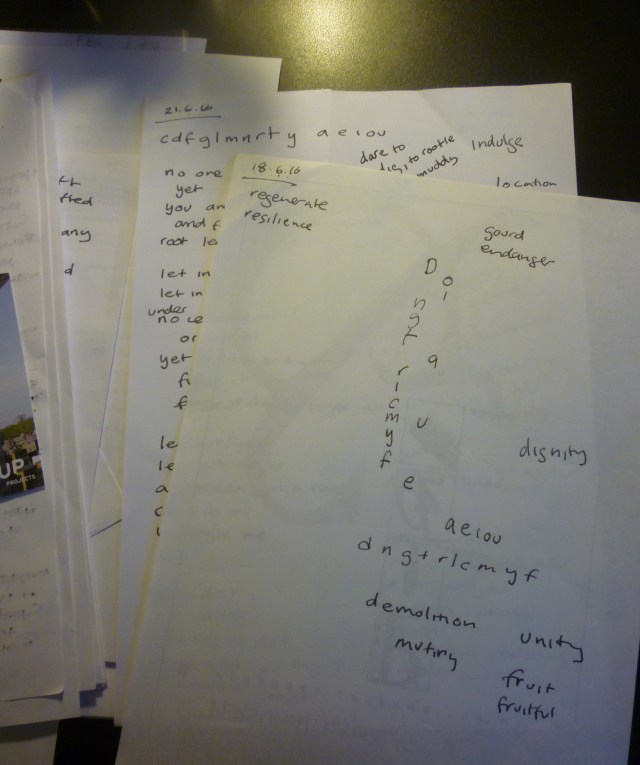 21.6.16
c d f g l m n r t y a e i o u
dare to
to rootle
muddy
Indulge
location
no one
yet
you an
and f
root le
let in
let in
under
no ce
or
yet
fi
f
le
le
a
c
ft
fted
any
d
UP
PROJECTS
18.6.16
regenerate
resilience
gourd
endanger
D
o
i
n
g
t
a
r
l
c
m
u
y
f
e
dignity
a e i o u
d n g t r l c m y f
demolition
unity
mutiny
fruit
fruitful